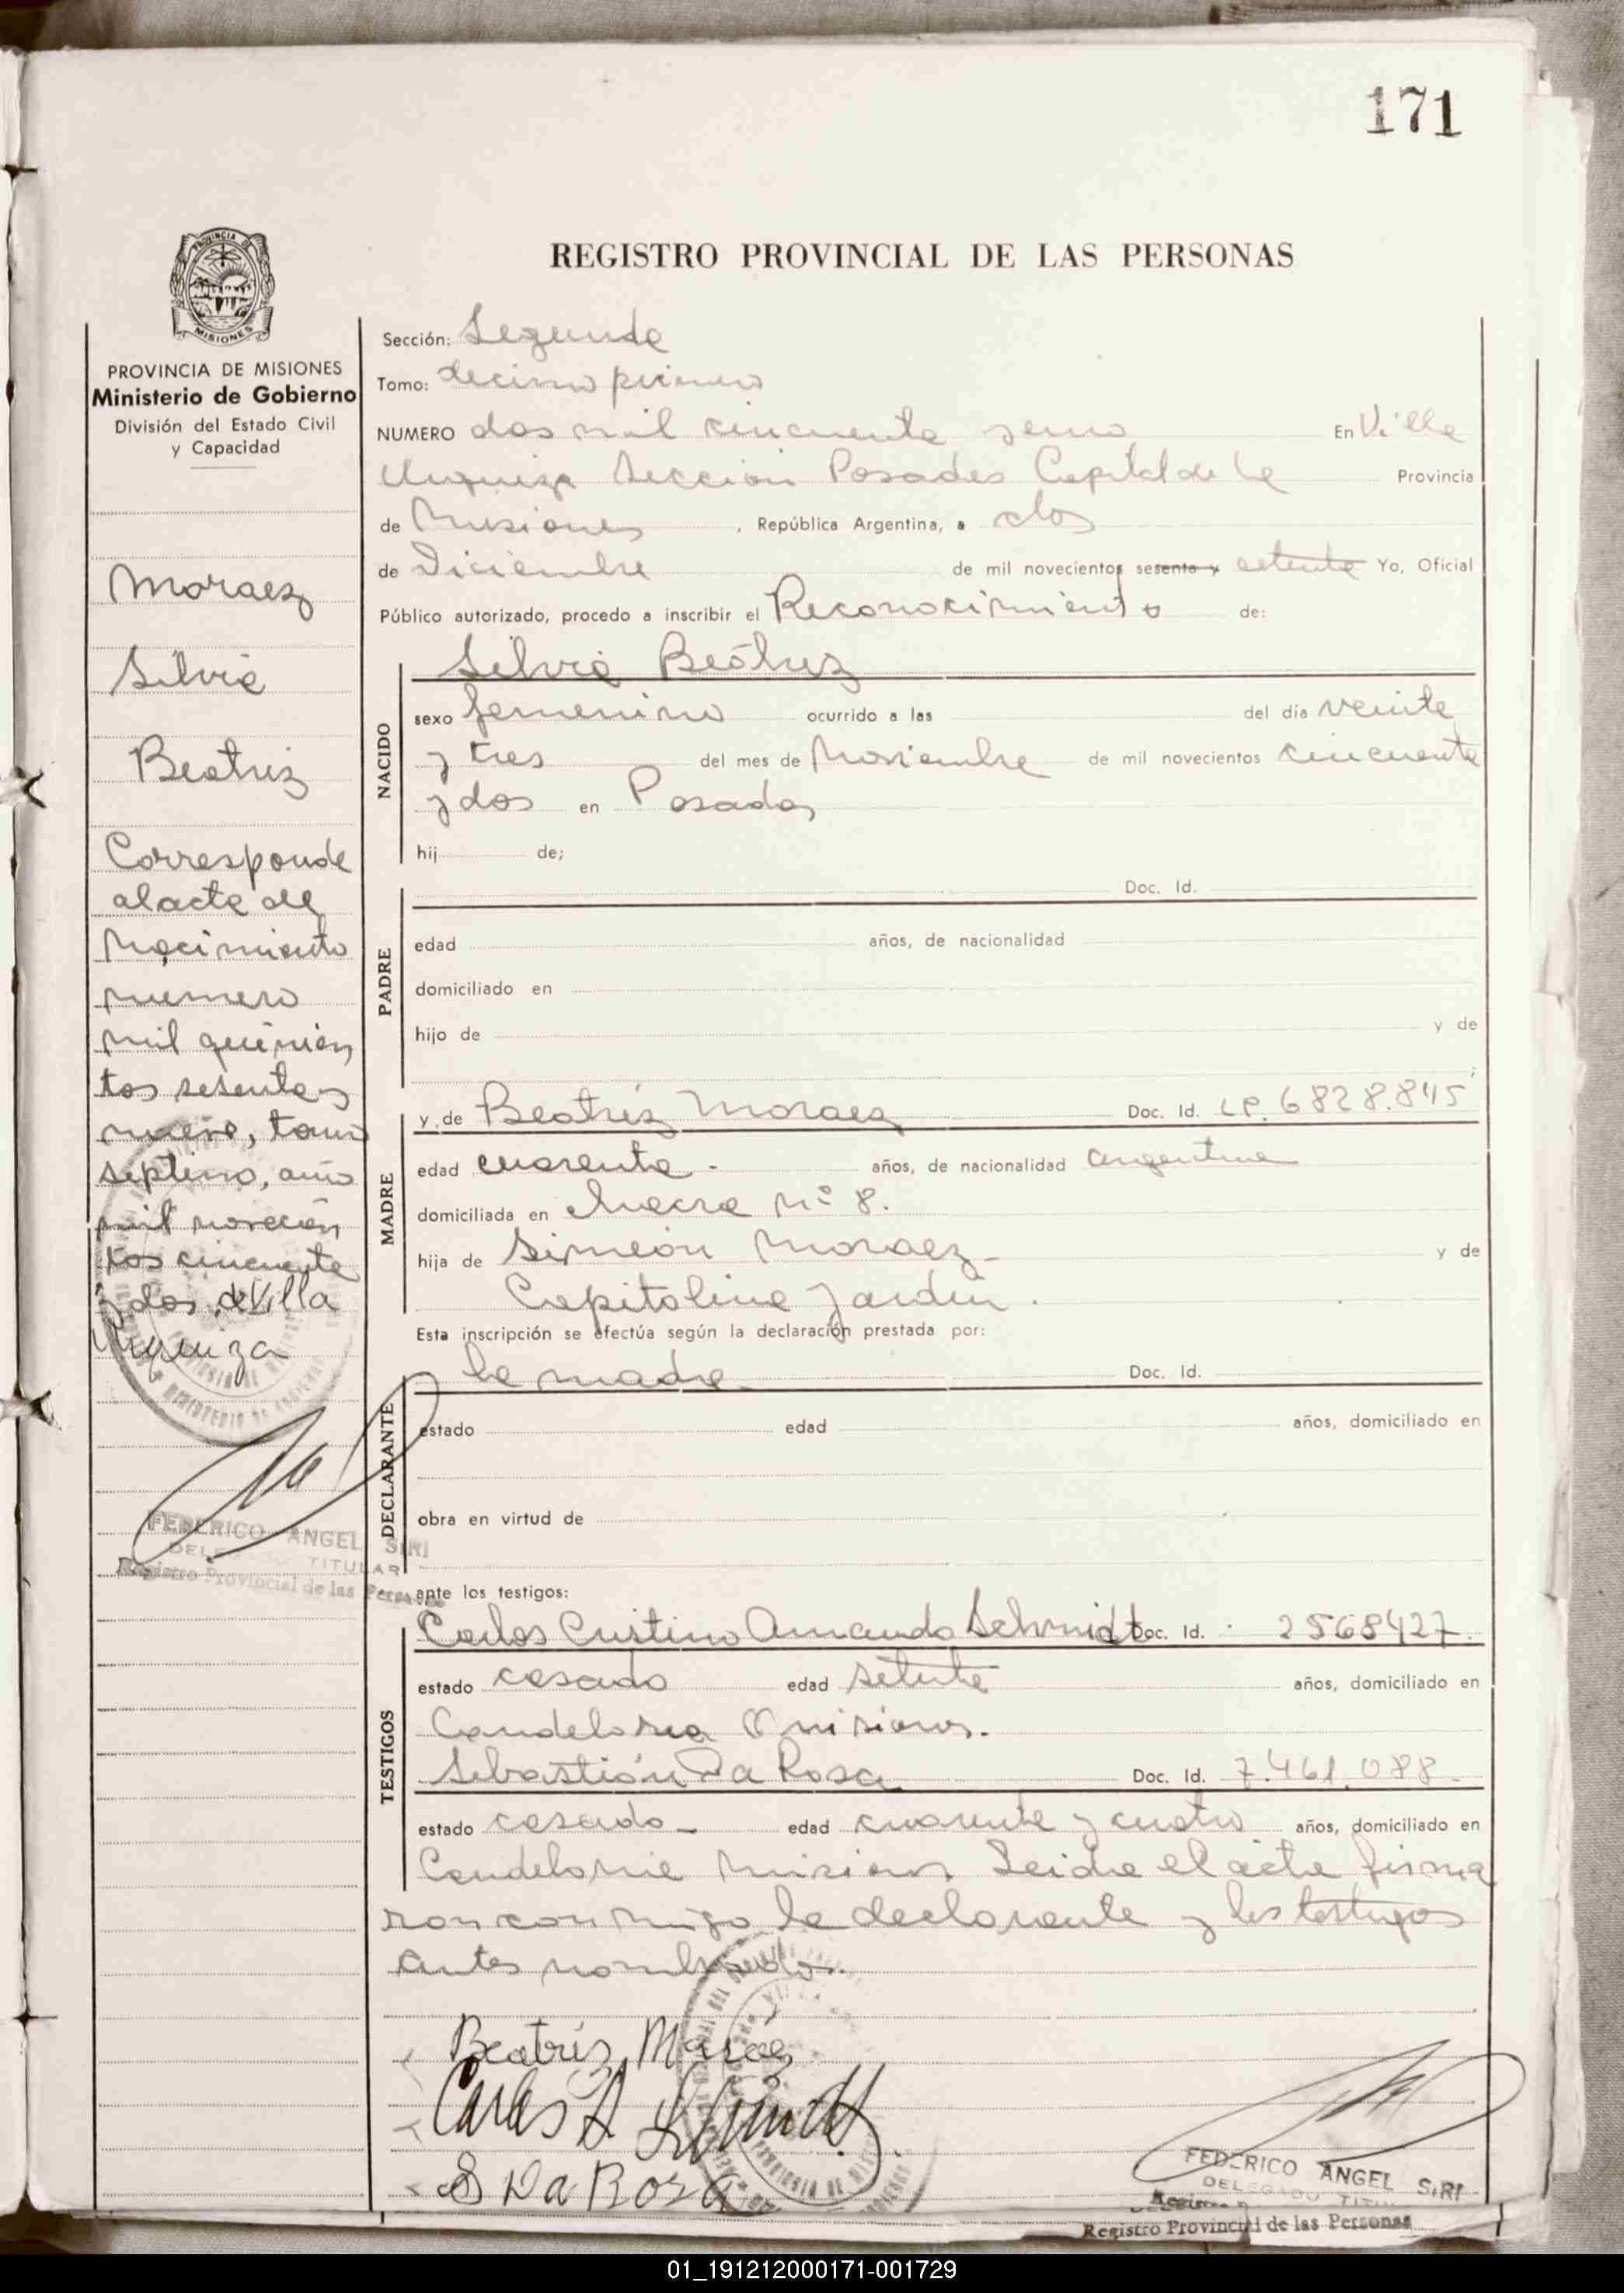 171
PROVINCIA DE
MISIONES
PROVINCIA DE MISIONES
Ministerio de Gobierno
División del Estado Civil
y Capacidad
Moraez
Silvia
Beatriz
Corresponde
al acta de
Nacimiento
numero
mil quinien
tos sesenta y
nueve, tomo
septimo, año
mil novecien
tos cincuenta
y dos, de Villa
Urquiza
FEDERICO ANGEL SIRI
TITULAR
Registro Provincial de las Personas
REGISTRO PROVINCIAL DE LAS PERSONAS
Sección: Segunda
Tomo: decimo primero
NUMERO dos mil cincuenta En Villa
Urquiza Sección Posadas Capital de la Provincia
de Misiones , República Argentina, a dos
de Diciembre de mil novecientos sesenta y setenta Yo, Oficial
Público autorizado, procedo a inscribir el Reconocimiento de:
NACIDO
Silvia Beatriz
sexo femenino ocurrido a las del día veinte
y tres del mes de Noviembre de mil novecientos cincuenta
y dos en Posadas
hij de;
PADRE
Doc. Id.
edad años, de nacionalidad
domiciliado en
hijo de y de
;
MADRE
y de Beatríz Moraez Doc. Id. LC. 6828.845
edad cuarenta - años, de nacionalidad argentina
domiciliada en chacra Nº 8.
hija de Simeón Moraez - y de
Capitolina Jardin .
Esta inscripción se efectúa según la declaración prestada por:
DECLARANTE
la madre Doc. Id.
estado edad años, domiciliado en
obra en virtud de
ante los testigos:
TESTIGOS
Carlos Cristino Armando Schmidt Doc. Id. 2568427.
estado casado edad setenta años, domiciliado en
Candelaria Misiones.
Sebastián Da Rosa Doc. Id. 7.461.088
estado casado - edad cuarenta y cuatro años, domiciliado en
Candelaria Misiones Leida el acta firma
ron conmigo la declarante y los testigos
antes nombrados.
Beatríz Moraéz
Carlos A Schmidt
S Da Rosa
FEDERICO ANGEL SIRI
Registro Provincial de las Personas
01_191212000171-001729